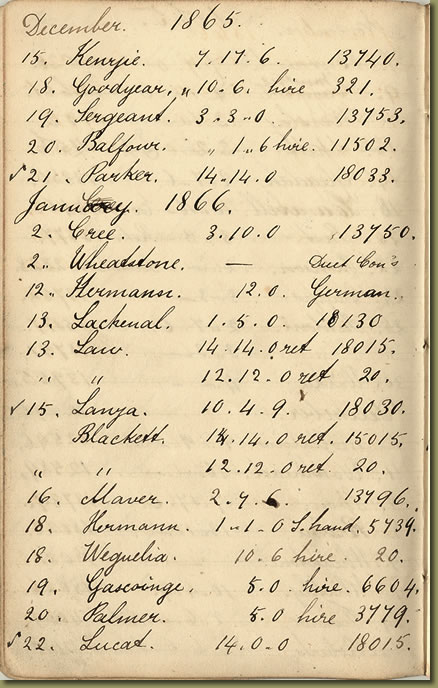 December. 1865.
15. Kenzie. 7.17.6. 13740.
18. Goodyear, „10.6. hire 321.
19. Sergeant. 3.3.0. 13753.
20. Balfour. 1.6 hire. 11502.
√21. Parker. 14.14.0 18033.
January. 1866.
2. Cree. 3.10.0 13750.
2. Wheatstone. — Duet Con's
12. Hermann. 12.0. German.
13. Lachenal. 1.5.0. 18130
13. Law. 14.14.0 ret 18015.
„ „ 12.12.0 ret 20.
√15. Lanza. 10.4.9. 18030.
Blackett. 14.14.0 ret. 15015.
„ „ 12.12.0 ret 20.
16. Maver 2.7.6. 13796.
18. Hermann. 1.1.0 S.hand. 5739.
18. Weguelia. 10.6 hire. 20.
19. Gascoinge. 5.0. hire. 6604.
20. Palmer. 5.0 hire 3779.
√22. Lucat. 14.0.0 18015.